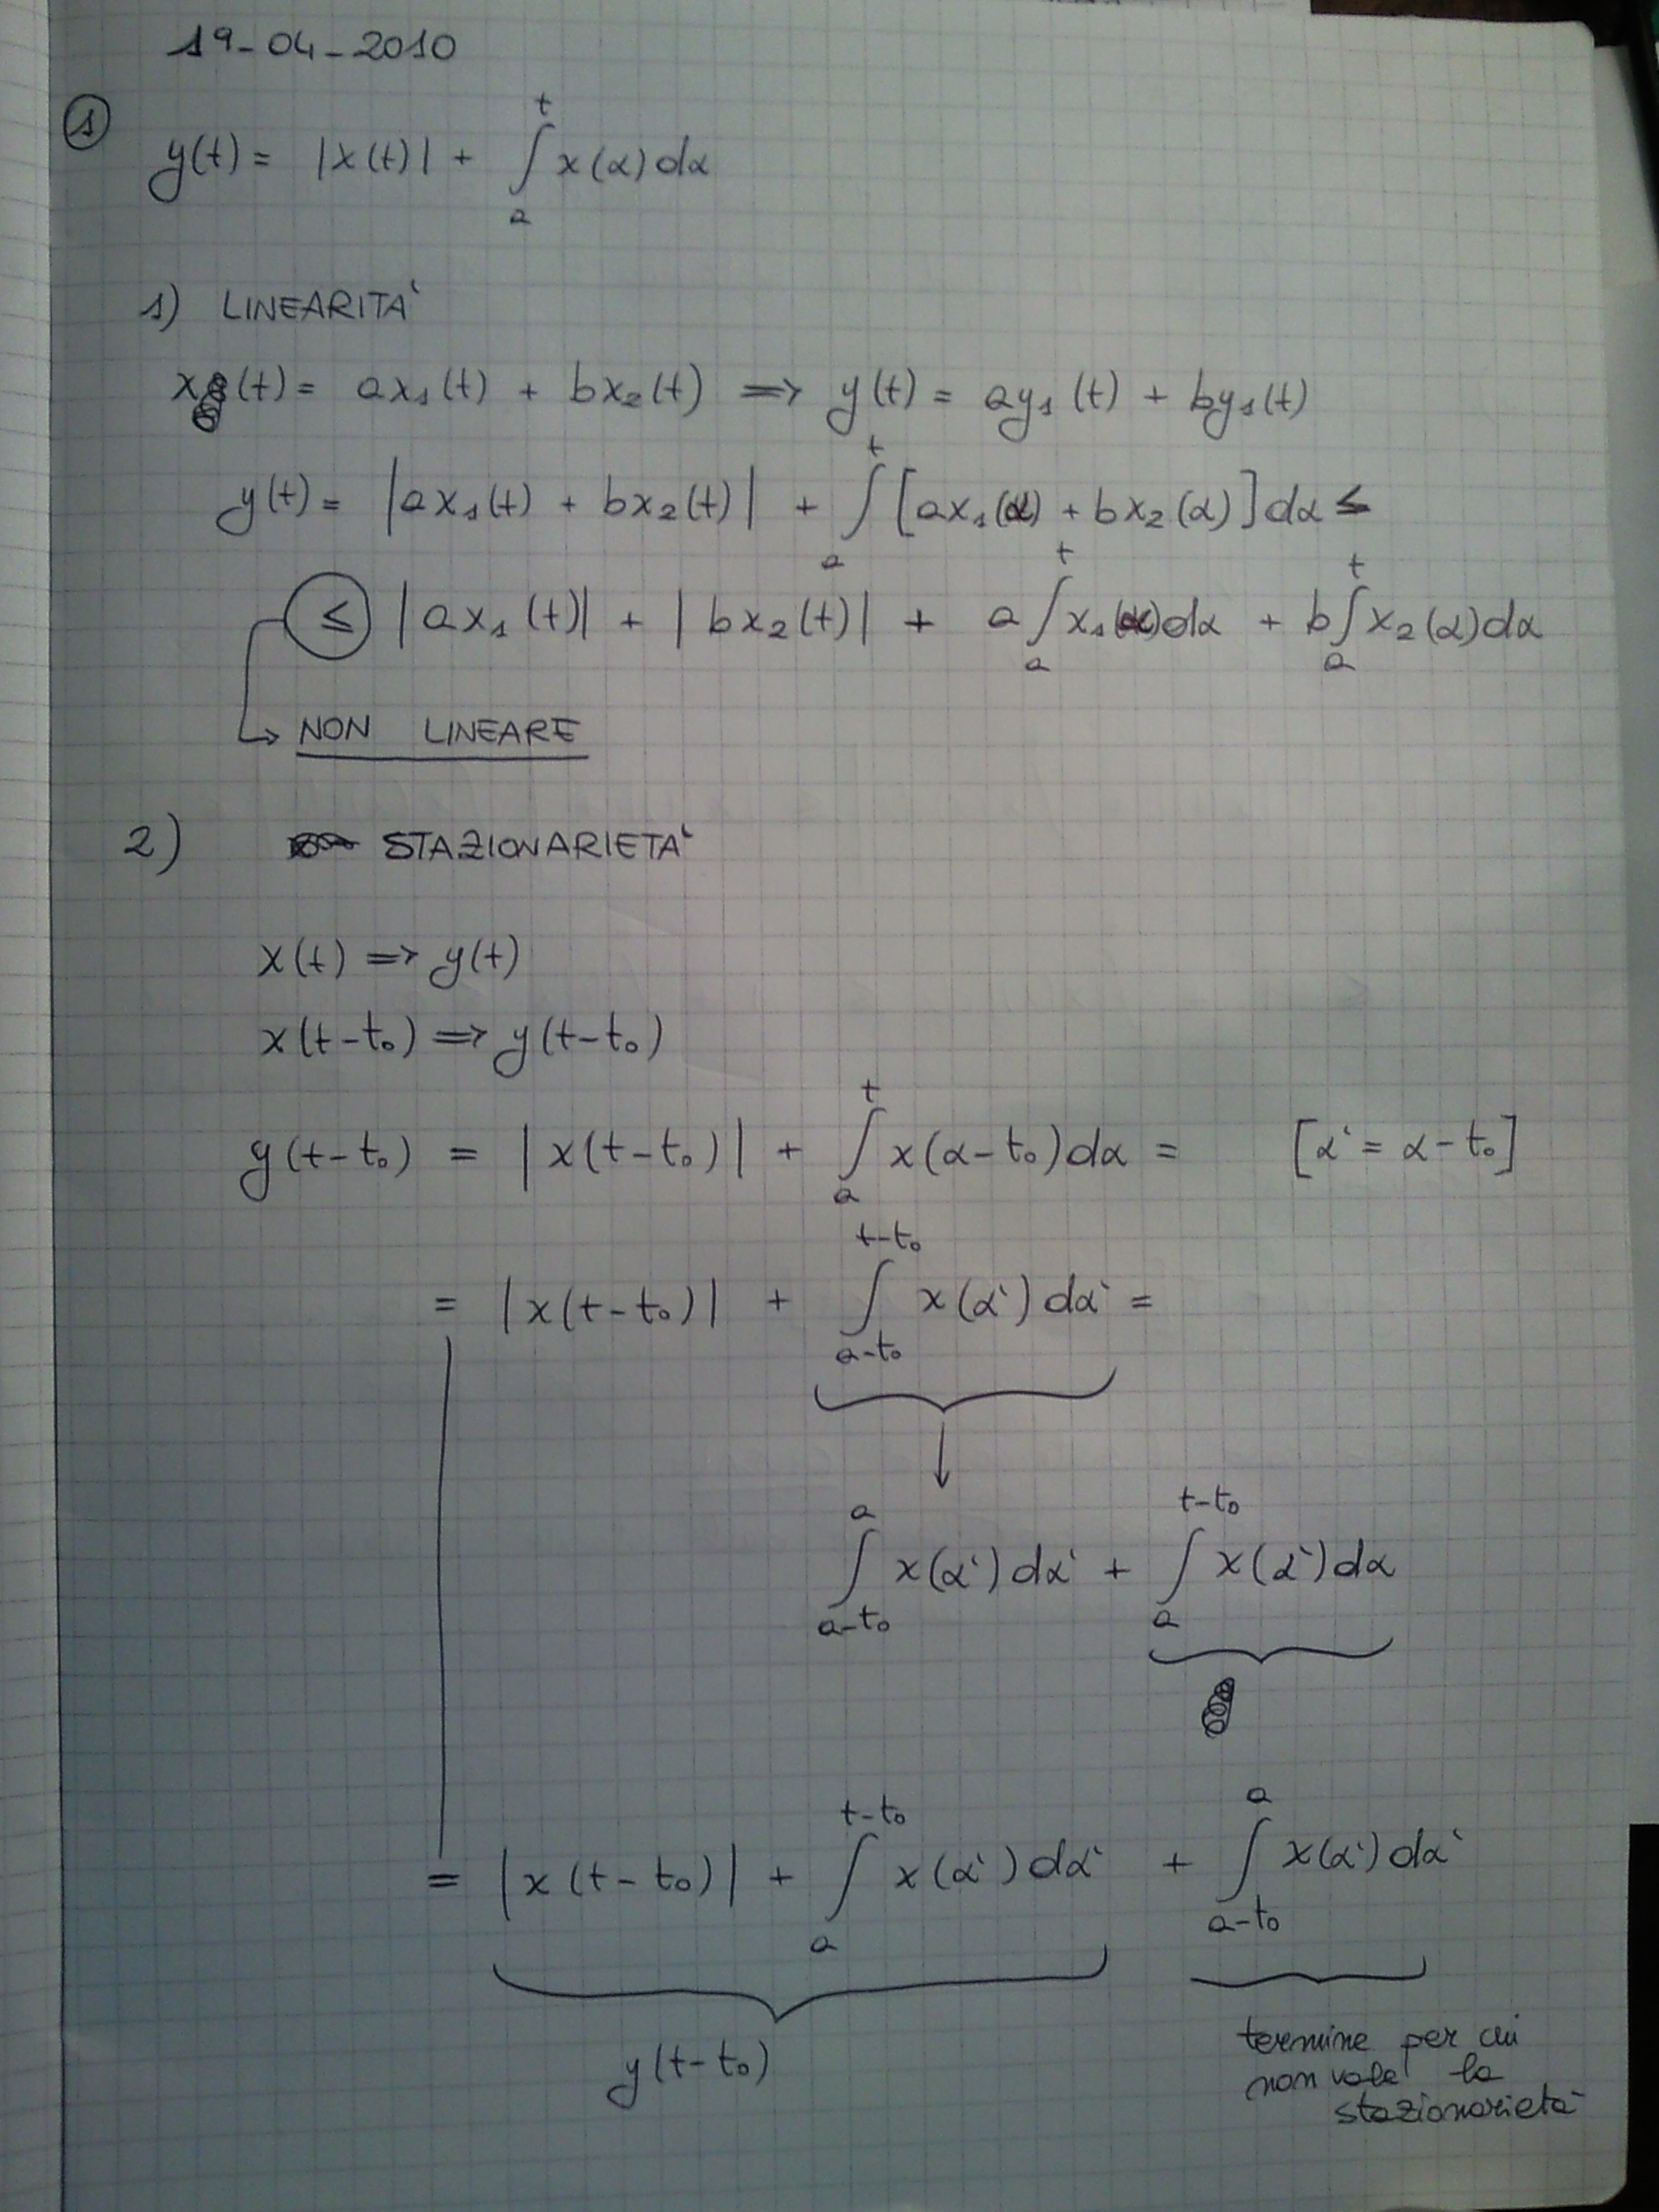 19-04-2010
① y(t) = |x(t)| + ∫ₐᵗ x(α)dα
1) LINEARITA'
x(t) = ax₁(t) + bx₂(t) ⇒ y(t) = ay₁(t) + by₁(t)
y(t) = |ax₁(t) + bx₂(t)| + ∫ₐᵗ [ax₁(α) + bx₂(α)]dα ≤
≤ |ax₁(t)| + |bx₂(t)| + a∫ₐᵗ x₁(α)dα + b∫ₐᵗ x₂(α)dα
↳ NON LINEARE
2) STAZIONARIETA'
x(t) ⇒ y(t)
x(t-t₀) ⇒ y(t-t₀)
y(t-t₀) = |x(t-t₀)| + ∫ₐᵗ x(α-t₀)dα = [α' = α-t₀]
= |x(t-t₀)| + ∫_{a-t₀}^{t-t₀} x(α')dα' =
↓
∫_{a-t₀}^{a} x(α')dα' + ∫_{a}^{t-t₀} x(α')dα
= |x(t-t₀)| + ∫_{a}^{t-t₀} x(α')dα' + ∫_{a-t₀}^{a} x(α')dα'
y(t-t₀)
termine per cui
non vale la
stazionarietà